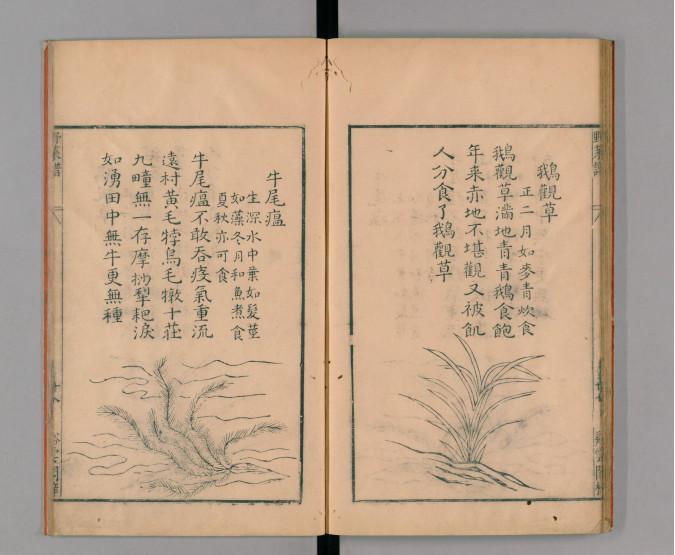 鵝觀草
正二月如麥青炊食
鵝觀草滿地青青鵝食飽
年來赤地不堪觀又被飢
人分食了鵝觀草
牛尾瘟
生深水中葉如髮莖
如藻冬月和魚煮食
夏秋亦可食
牛尾瘟不敢吞疫氣重流
遠村黃毛牸烏毛犉十莊
九疃無一存摩挱犁耙淚
如湧田中無牛更無種
野菜譜